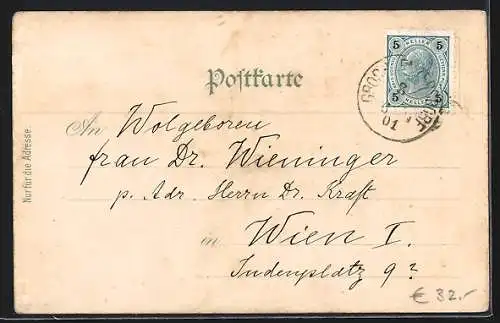 5 HELLER 5
Postkarte
5 HELLER 5
GROSS
01
An Wolgeboren
frau Dr. Wieninger
p. Adr. Herrn Dr. Kraft
in Wien I.
Judenplatz 9?
Nur für die Adresse.
€ 32.-